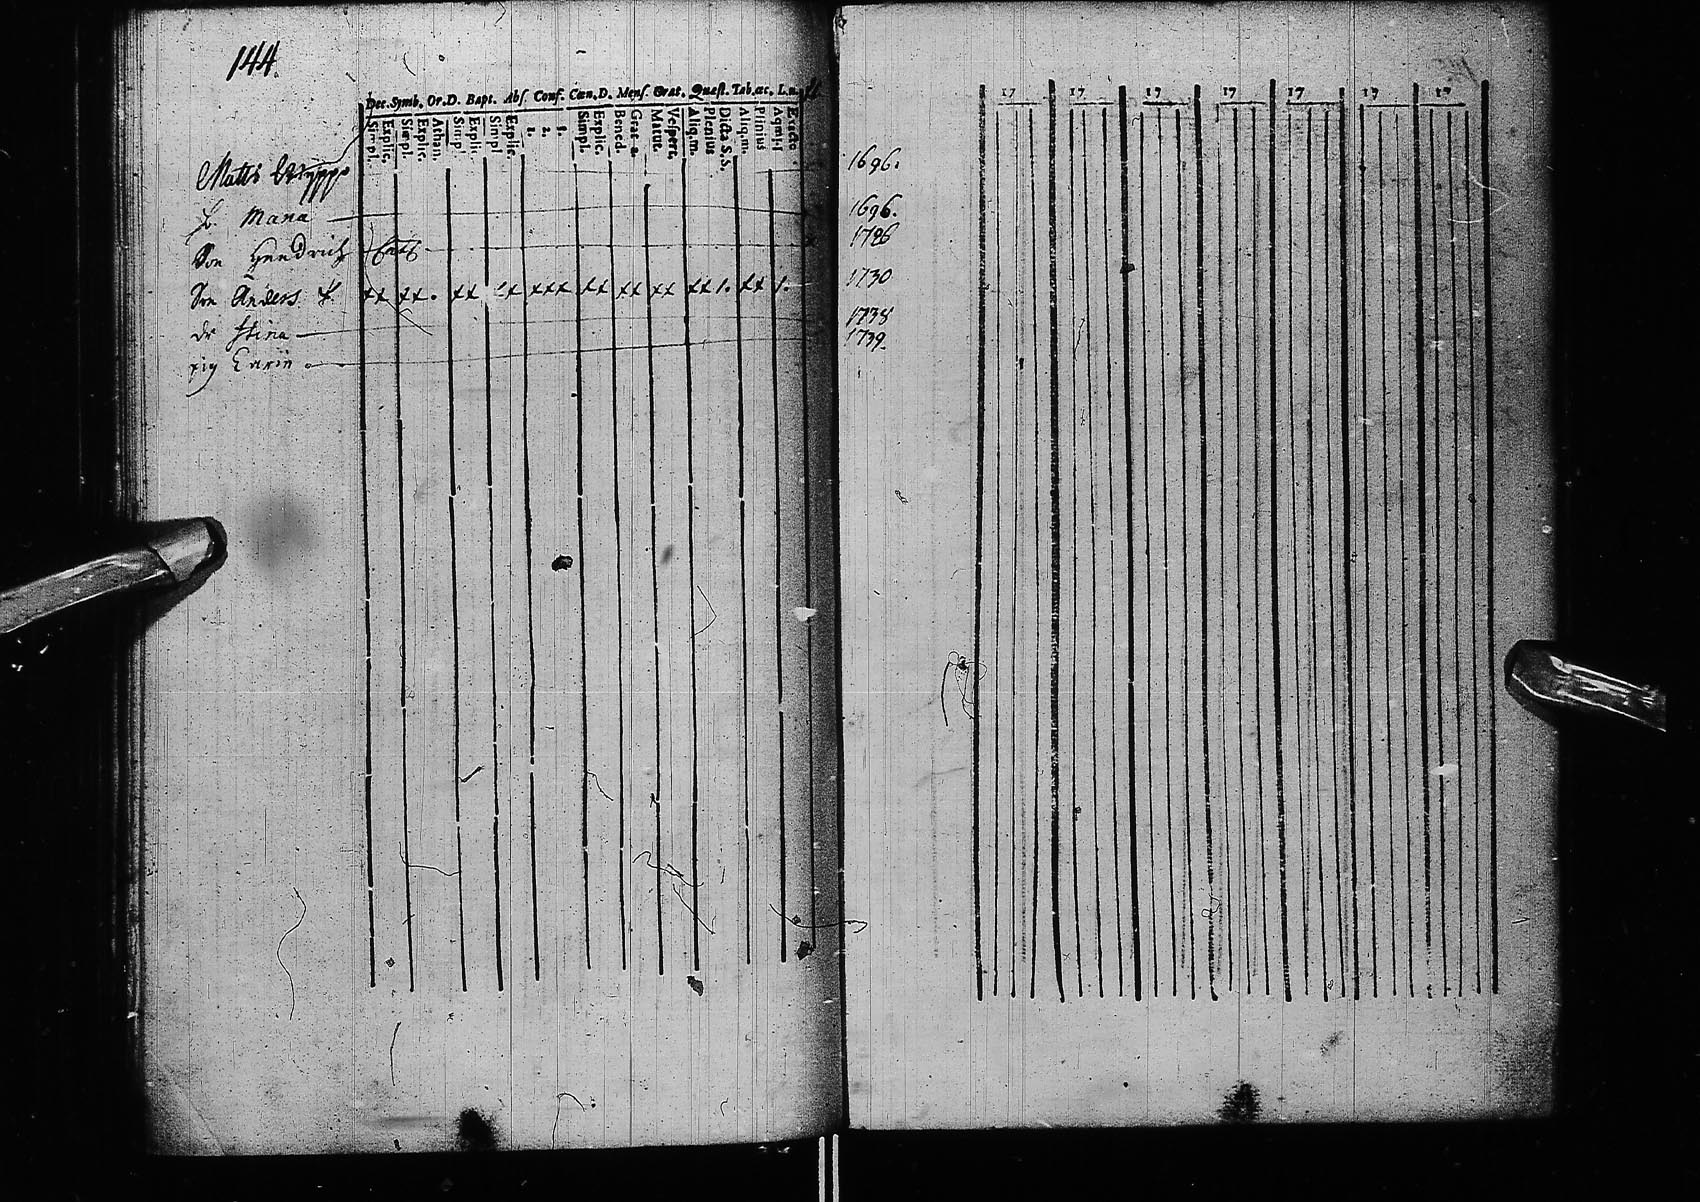 144.
Dec. Symb. Or. D. Bapt. Abs. Conf. Cœn. D. Mens. Grat. Quæst. Tab. æc. L. n.
Simpl. Explic. Simpl. Explic. Athan. Simp. Explic. Simpl. Explic. 1. 2. 3. Simpl. Explic. Bened. Grat. a. Matut. Vespert. Aliq. m. Plenius Dicta S.S. Aliq. m. Plenius
Matts 1696.
h. Maria 1696.
Son Hendrich 1726
Son Anders xx xx. xx xx xxx xx xx xx xx 1. xx 1. 1730
dr Stina 1738
pig Carin 1739.
17 17 17 17 17 17 17